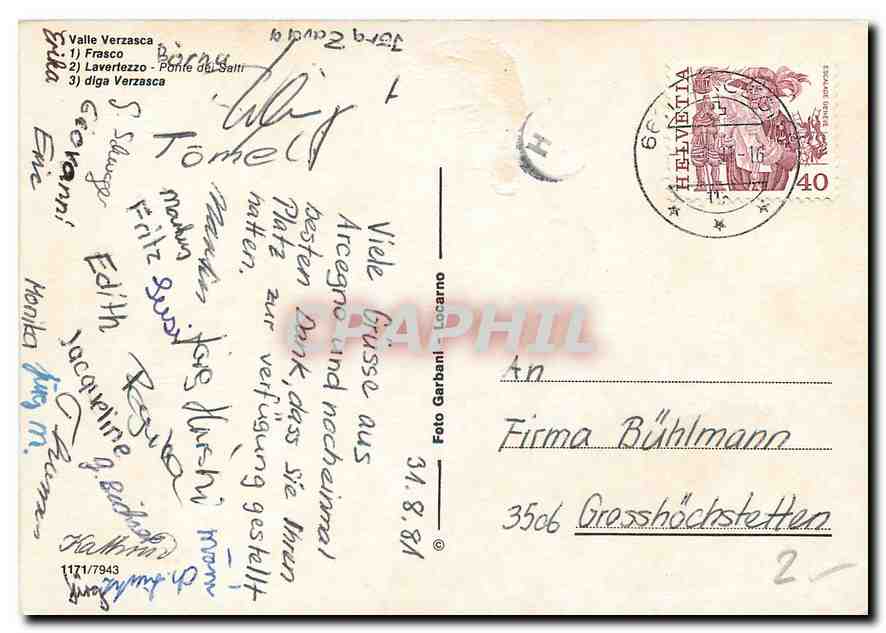 Valle Verzasca
1) Frasco
2) Lavertezzo - Ponte dei Salti
3) diga Verzasca
Erika
Giovanni
Eric
Tömel
Markus
Fritz
Susi
Edith
Jacqueline
Monika
Jürg M.
Regina
Jörg
Kathrin
Viele Grüsse aus
Arcegno und nocheinmal
besten Dank, dass sie Ihren
Platz zur verfügung gestellt
hatten.
31.8.81
Foto Garbani - Locarno
©
1171/7943
HELVETIA
ESCALADE GENÈVE
40
H
An
Firma Bühlmann
3506 Grosshöchstetten
2 -
CPAPHIL